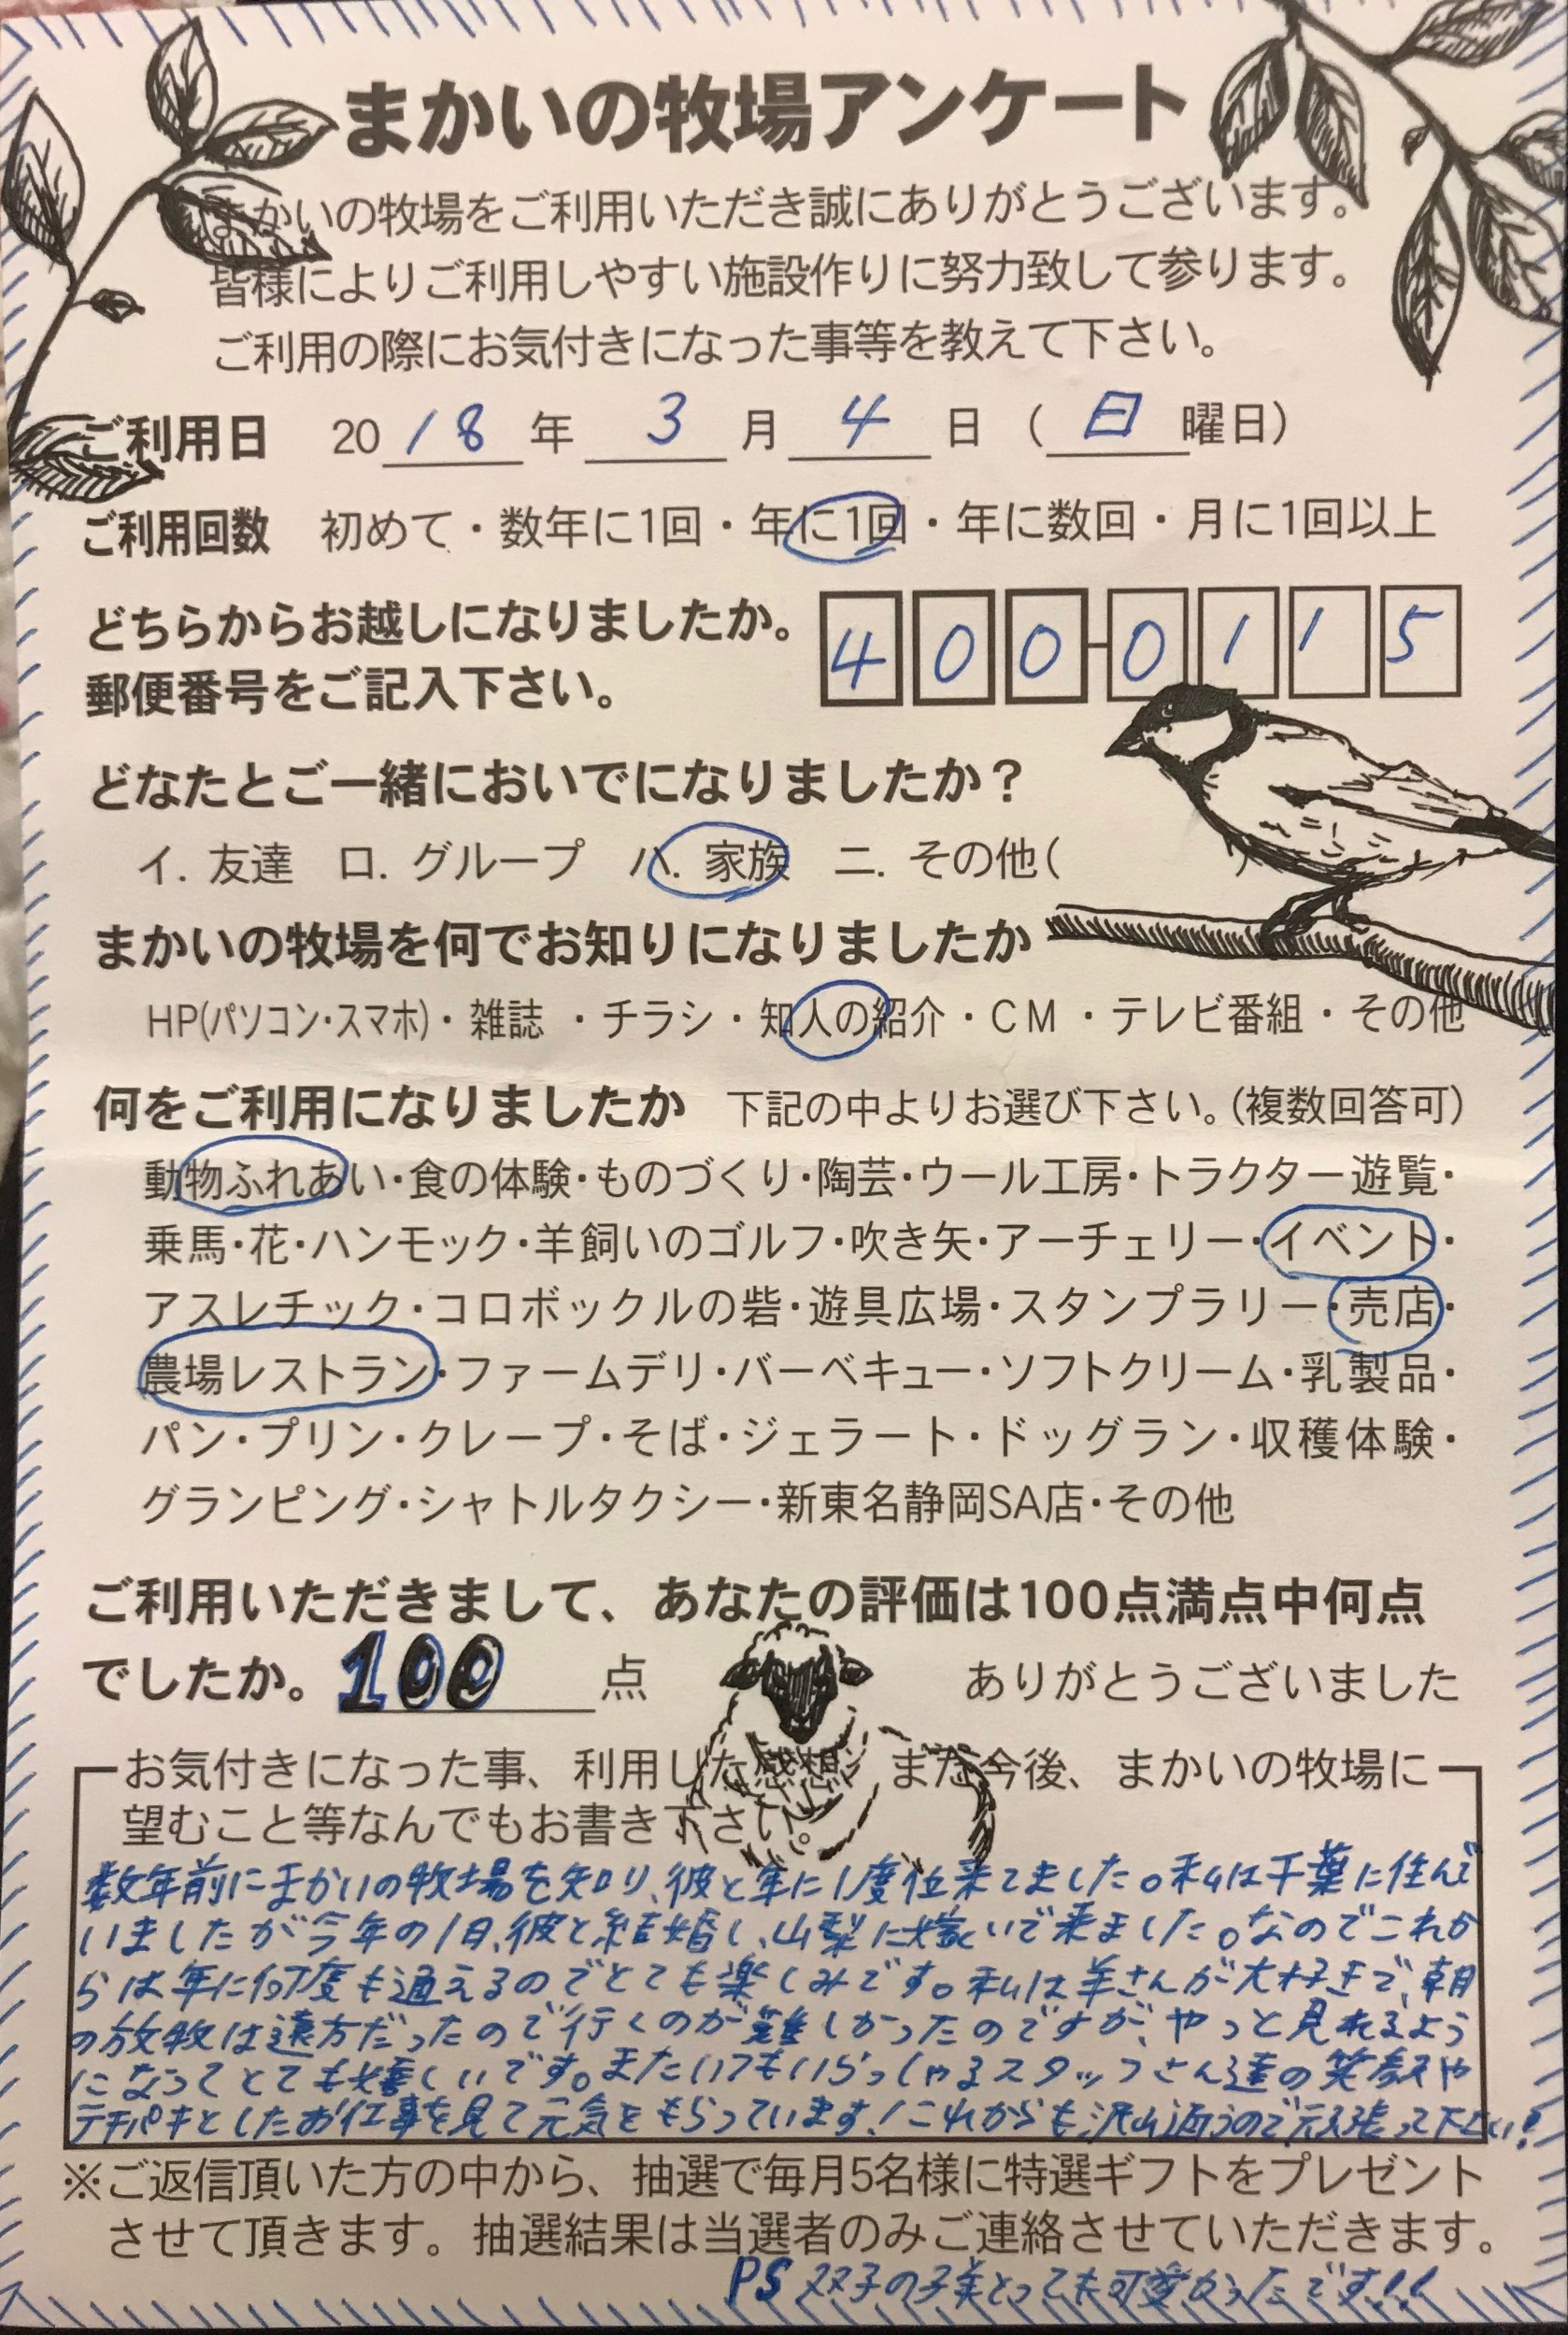 まかいの牧場アンケート
まかいの牧場をご利用いただき誠にありがとうございます。
皆様によりご利用しやすい施設作りに努力致して参ります。
ご利用の際にお気付きになった事等を教えて下さい。
ご利用日 2018年 3月 4日 (日曜日)
ご利用回数 初めて・数年に1回・年に1回・年に数回・月に1回以上
どちらからお越しになりましたか。
郵便番号をご記入下さい。 400-0115
どなたとご一緒においでになりましたか？
イ. 友達 ロ. グループ ハ. 家族 ニ. その他( )
まかいの牧場を何でお知りになりましたか
HP(パソコン・スマホ)・雑誌・チラシ・知人の紹介・CM・テレビ番組・その他
何をご利用になりましたか 下記の中よりお選び下さい。(複数回答可)
動物ふれあい・食の体験・ものづくり・陶芸・ウール工房・トラクター遊覧・
乗馬・花・ハンモック・羊飼いのゴルフ・吹き矢・アーチェリー・イベント・
アスレチック・コロボックルの砦・遊具広場・スタンプラリー・売店・
農場レストラン・ファームデリ・バーベキュー・ソフトクリーム・乳製品・
パン・プリン・クレープ・そば・ジェラート・ドッグラン・収穫体験・
グランピング・シャトルタクシー・新東名静岡SA店・その他
ご利用いただきまして、あなたの評価は100点満点中何点
でしたか。100点 ありがとうございました
お気付きになった事、利用した感想、また今後、まかいの牧場に
望むこと等なんでもお書き下さい。
数年前にまかいの牧場を知り、彼と年に1度位来てました。私は千葉に住んで
いましたが今年の1月、彼と結婚し、山梨に嫁いで来ました。なのでこれか
らは年に何度も通えるのでとても楽しみです。私は羊さんが大好きで、朝
の放牧は遠方だったので行くのが難しかったのですが、やっと見れるよう
になってとても嬉しいです。またいつもいらっしゃるスタッフさん達の笑顔や
テキパキとしたお仕事を見て元気をもらっています！これからも沢山通うので頑張って下さい！
※ご返信頂いた方の中から、抽選で毎月5名様に特選ギフトをプレゼント
させて頂きます。抽選結果は当選者のみご連絡させていただきます。
PS 双子の子羊とっても可愛かったです!!